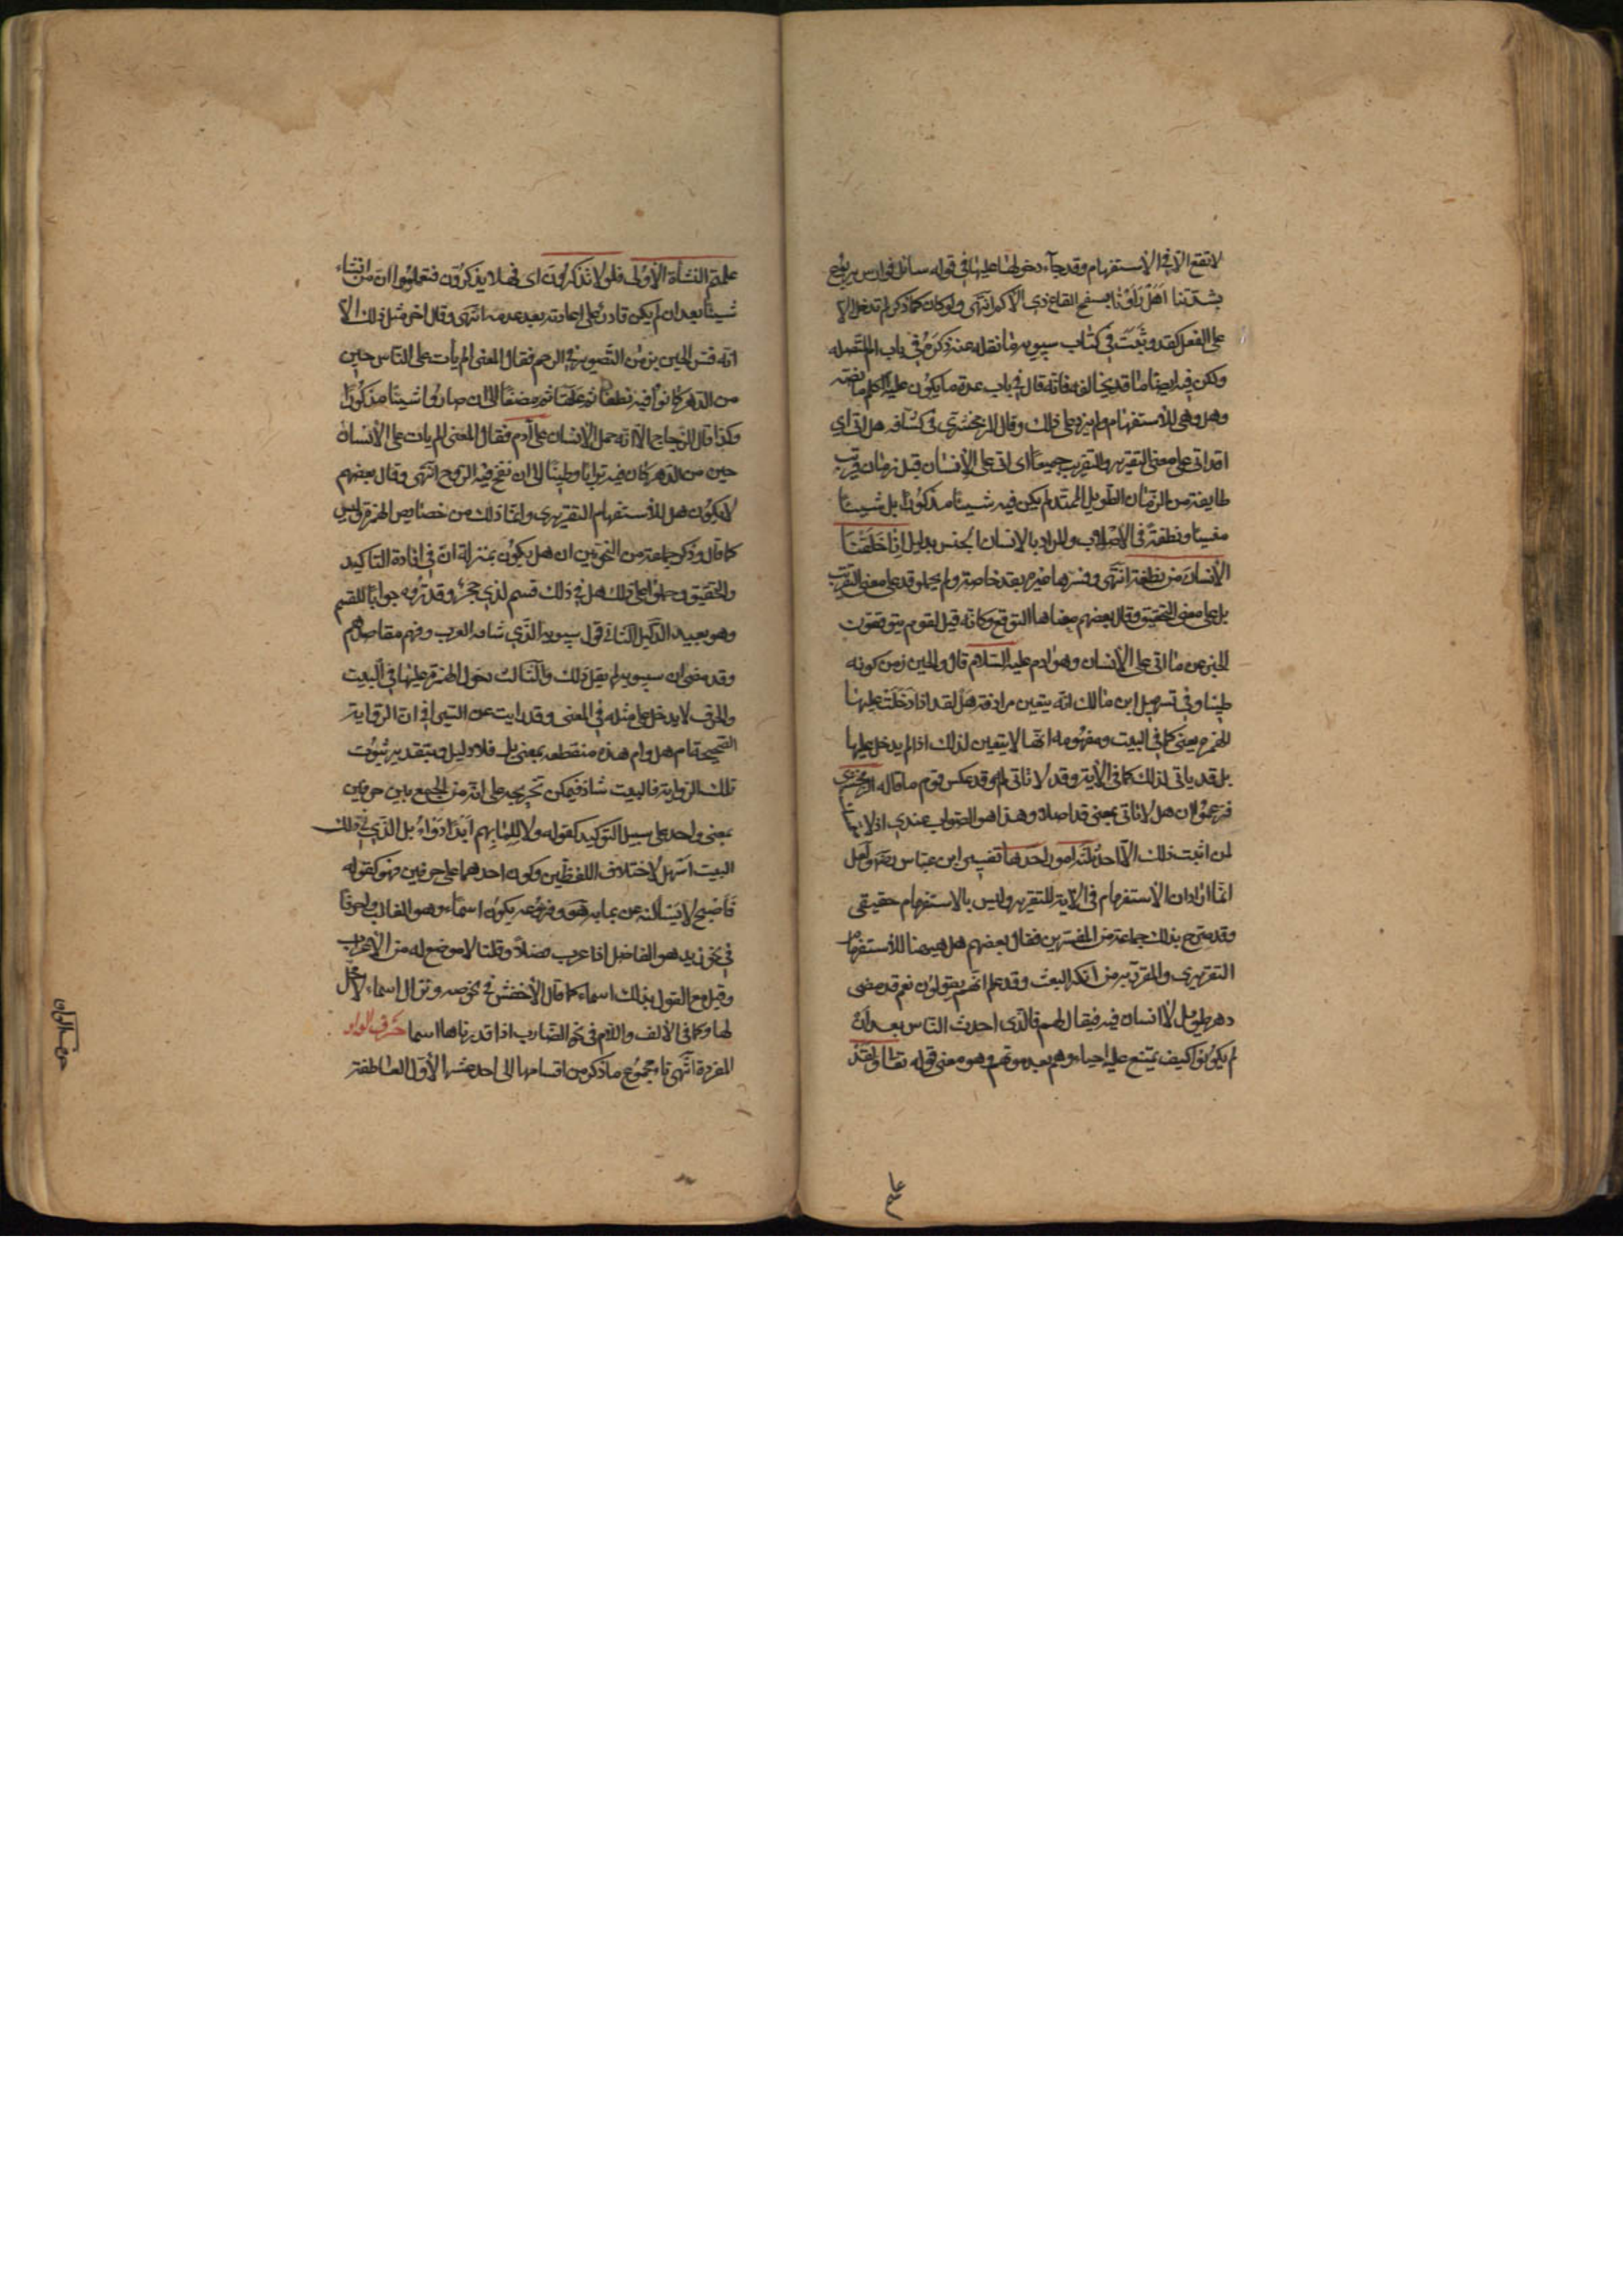 لا تقع الا في الاستفهام وقد جاء دخولها عليها في قوله سائل فوارس يربوع
بشدتنا اهل راونا بسفح القاع ذي الاكم انتهى ولو كان كما ذكر لم تدخل الا
على الفعل كقد وثبت في كتاب سيبويه ما نقله عنه ذكره في باب ام المتصلة
ولكن فيه ايضا ما قد يخالفه فانه قال في باب عدة ما يكون عليه الكلم ما نصه
وهل وهي للاستفهام ولم يزد على ذلك وقال الزمخشري في كشافه هل اتى اي
اقد اتى على معنى التقرير والتقريب جميعا اي اتى على الانسان قبل زمان قريب
طايفة من الزمان الطويل الممتد لم يكن فيه شيئا مذكورا بل شيئا
منسيا ونطفة في الاصلاب والمراد بالانسان الجنس بدليل انا خلقنا
الانسان من نطفة انتهى وفسرها غيره بقد خاصة ولم يحملوا قد على معنى التقريب
بل على معنى التحقيق وقال بعضهم معناها التوقع وكانه قيل لقوم يتوقعون
الخبر عن ما اتى على الانسان وهو ادم عليه السلام قال والحين زمن كونه
طينا وفي تسهيل ابن مالك انه يتعين مرادفة هل لقد اذا دخلت عليها
الهمزة يعني كما في البيت ومفهومه انها لا يتعين لذلك اذا لم يدخل عليها
بل قد ياتي لذلك كما في الاية وقد لا تاتي له وقد عكس قوم ما قاله الزمخشري
فزعموا ان هل لا تاتي بمعنى قد اصلا وهذا هو الصواب عندي اذ لا
لمن اثبت ذلك الا احد ثلثة امور احدها تفسير ابن عباس رضه ولعل
انما اراد ان الاستفهام في الاية للتقرير وليس بالاستفهام حقيقي
وقد صرح بذلك جماعة من المفسرين فقال بعضهم هل هيهنا للاستفهام
التقريري والمقرر به من انكر البعث وقد علم انهم يقولون نعم قد مضى
دهر طويل لا انسان فيه فيقال لهم فالذي احدث الناس بعد ان
لم يكونوا كيف يمتنع عليه احياءهم بعد موتهم وهو معنى قوله تعا ولقد
علمتم النشأة الاولى فلولا تذكرون اي فهلا يذكرون فتعلموا ان من انشاء
شيئا بعد ان لم يكن قادر على اعادته بعد عدمه انتهى وقال اخر مثل ذلك الا
انه فسر الحين بزمن التصوير في الرحم فقال المعنى الم يأت على الناس حين
من الدهر كانوا فيه نطفا ثم علقا ثم مضغا الى ان صاروا شيئا مذكورا
وكذا قال الزجاج الا انه حمل الانسان على آدم فقال المعنى الم يات على الانسان
حين من الدهر كان فيه ترابا وطينا الى ان نفخ فيه الروح انتهى وقال بعضهم
لا يكون هل للاستفهام التقريري وانما ذلك من خصايص الهمزة وليس
كما قال وذكر جماعة من النحويين ان هل يكون بمنزلة ان في افادة التاكيد
والتحقيق وحملوا على ذلك هل في ذلك قسم لذي حجر وقدروه جوابا للقسم
وهو بعيد الدليل الثاني قول سيبويه الذي شافه العرب وفهم مقاصدهم
وقد مضى ان سيبويه لم يقل ذلك والثالث دخول الهمزة عليها في البيت
والحرف لا يدخل على مثله في المعنى وقد رايت عن السيرافي ان الرواية
الصحيحة ام هل وام هذه منقطعه بمعنى بل فلا دليل وبتقدير ثبوت
تلك الرواية فالبيت شاذ فيمكن تخريجه على انه من الجمع بين حرفين
بمعنى واحد على سبيل التوكيد كقوله ولا للما بهم ابدا دواء بل الذي في ذلك
البيت اسهل لاختلاف اللفظين وكون احدهما على حرفين وهو كقوله
فاصبح لا يسألنه عن بما به هو وفروعه يكون اسماء وهو الغالب واحرفا
في نحو زيد هو الفاضل اذا عرب فصلا وقلنا لا موضع له من الاعراب
وقيل مع القول بذلك اسماء كما قال الاخفش في نحو صه ونزال اسماء لا محل
لها وكما في الالف واللام في نحو الضارب اذا قدرناها اسما حرف الواو
المفردة انتهى تاء مجموع ما ذكر من اقسامها الى احد عشر الاول العاطفة